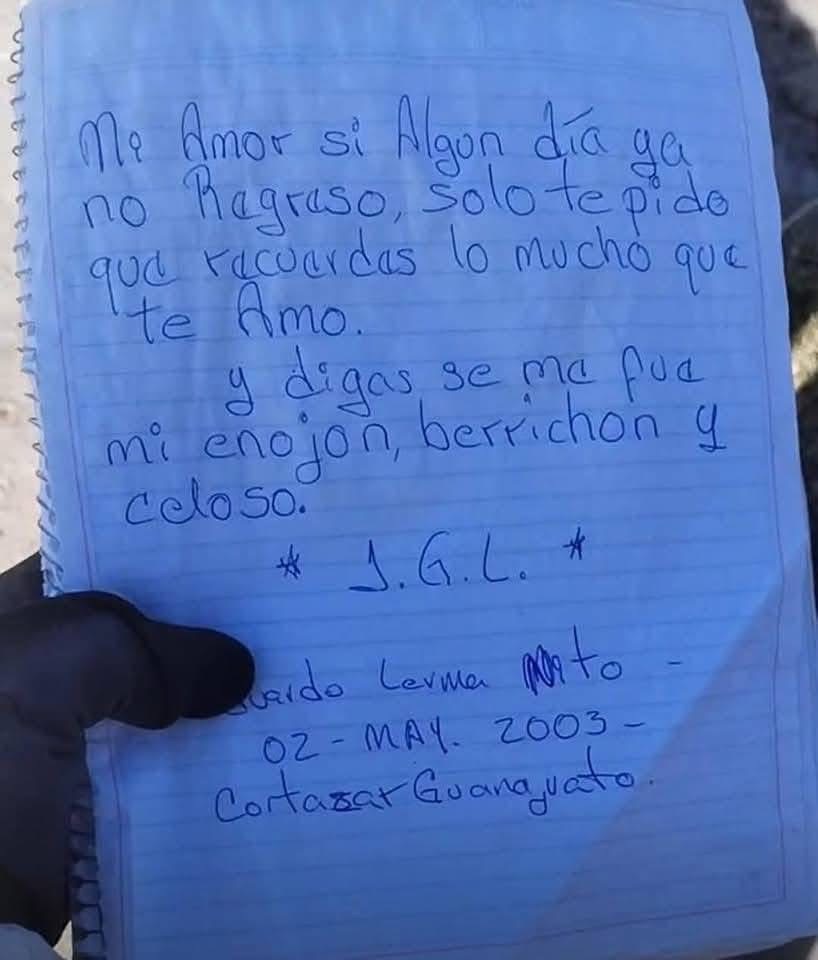 Mi Amor si Algon día ya
no Ragraso, solo te pido
qua racuardas lo mucho que
te Amo.
y digas se ma fua
mi enojon, berrichon y
celoso.
* J.G.L. *
Lerma to -
02 - MAY. 2003 -
Cortazar Guanajuato.